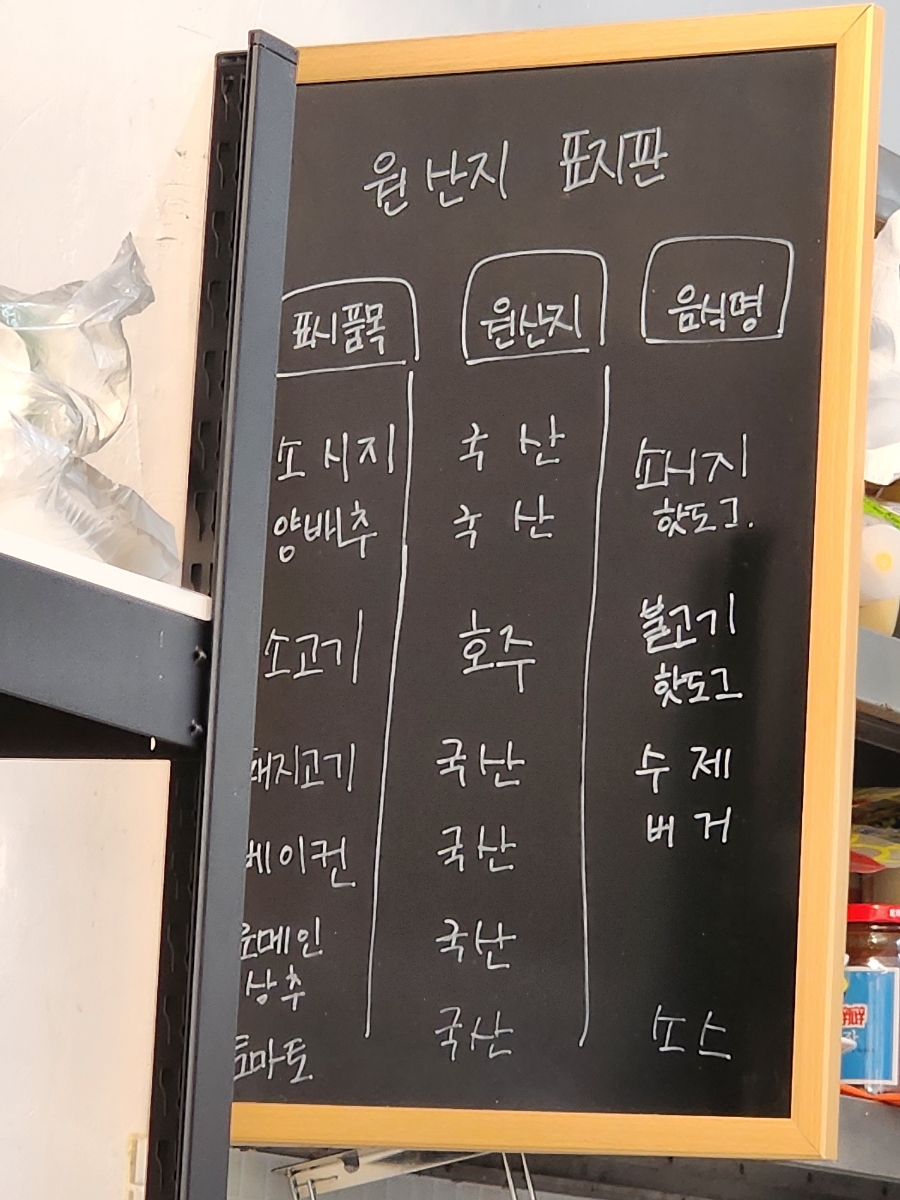 원산지 표시판
표시품목 원산지 음식명
소시지 국산 소시지
양배추 국산 핫도그.
소고기 호주 불고기
핫도그
돼지고기 국산 수제
베이컨 국산 버거
로메인 국산
상추
토마토 국산 소스